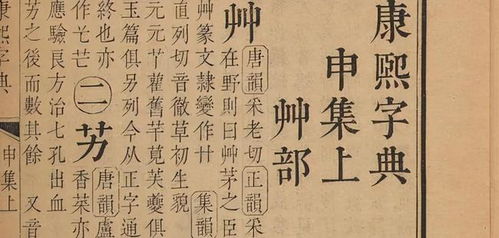 康熙字典
申集上
艸部
艸
唐韻采老切正韻采
在野則曰艸茅之臣
艸篆文隸變作艹 集韻
直列切音徹草初生貌
丫雚舊芊萈夔俱
玉篇俱另列今从正字通
終也亦
作
二
艻
唐韻盧
香菜亦
應驗良方治七孔出血
艻之後而數其餘 又音
康熙字典
申集上